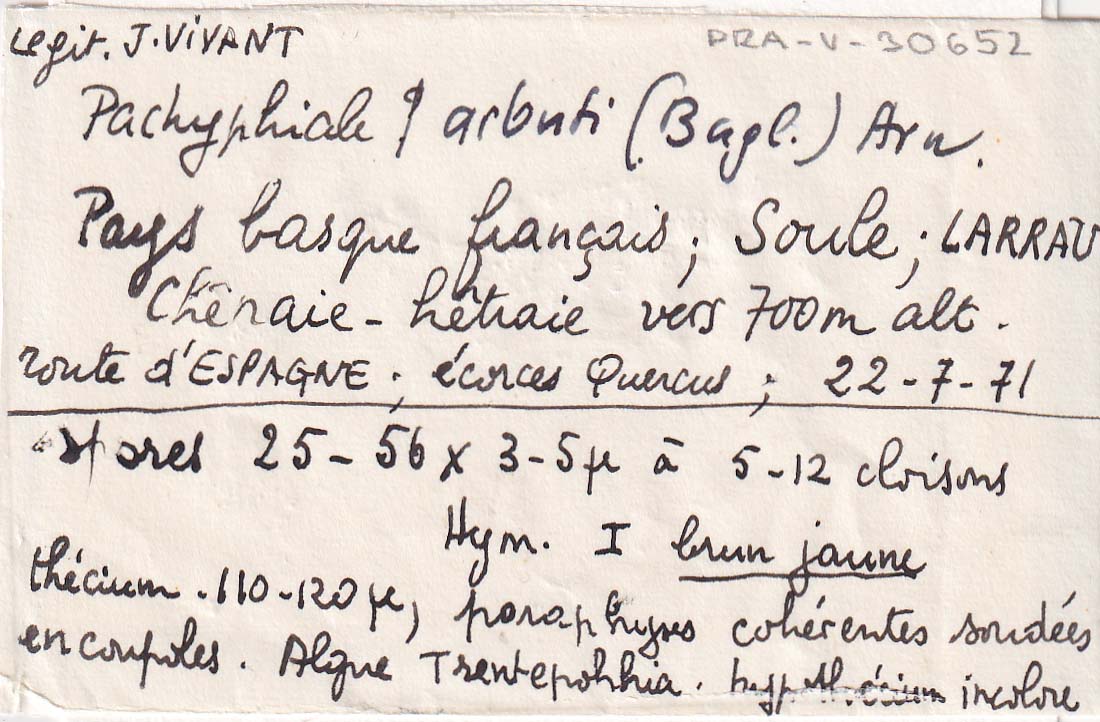 Legit. J. VIVANT PRA-V-30652
Pachyphiale arbuti (Bagl.) Arn.
Pays basque français; Soule; LARRAU
Chênaie-hêtraie vers 700m alt.
route d'ESPAGNE; écorces Quercus; 22-7-71
spores 25-56 x 3-5µ à 5-12 cloisons
Hym. I brun jaune
thécium. 110-120µ, paraphyses cohérentes soudées
en coupoles. Algue Trentepohhia. hypothécium incolore